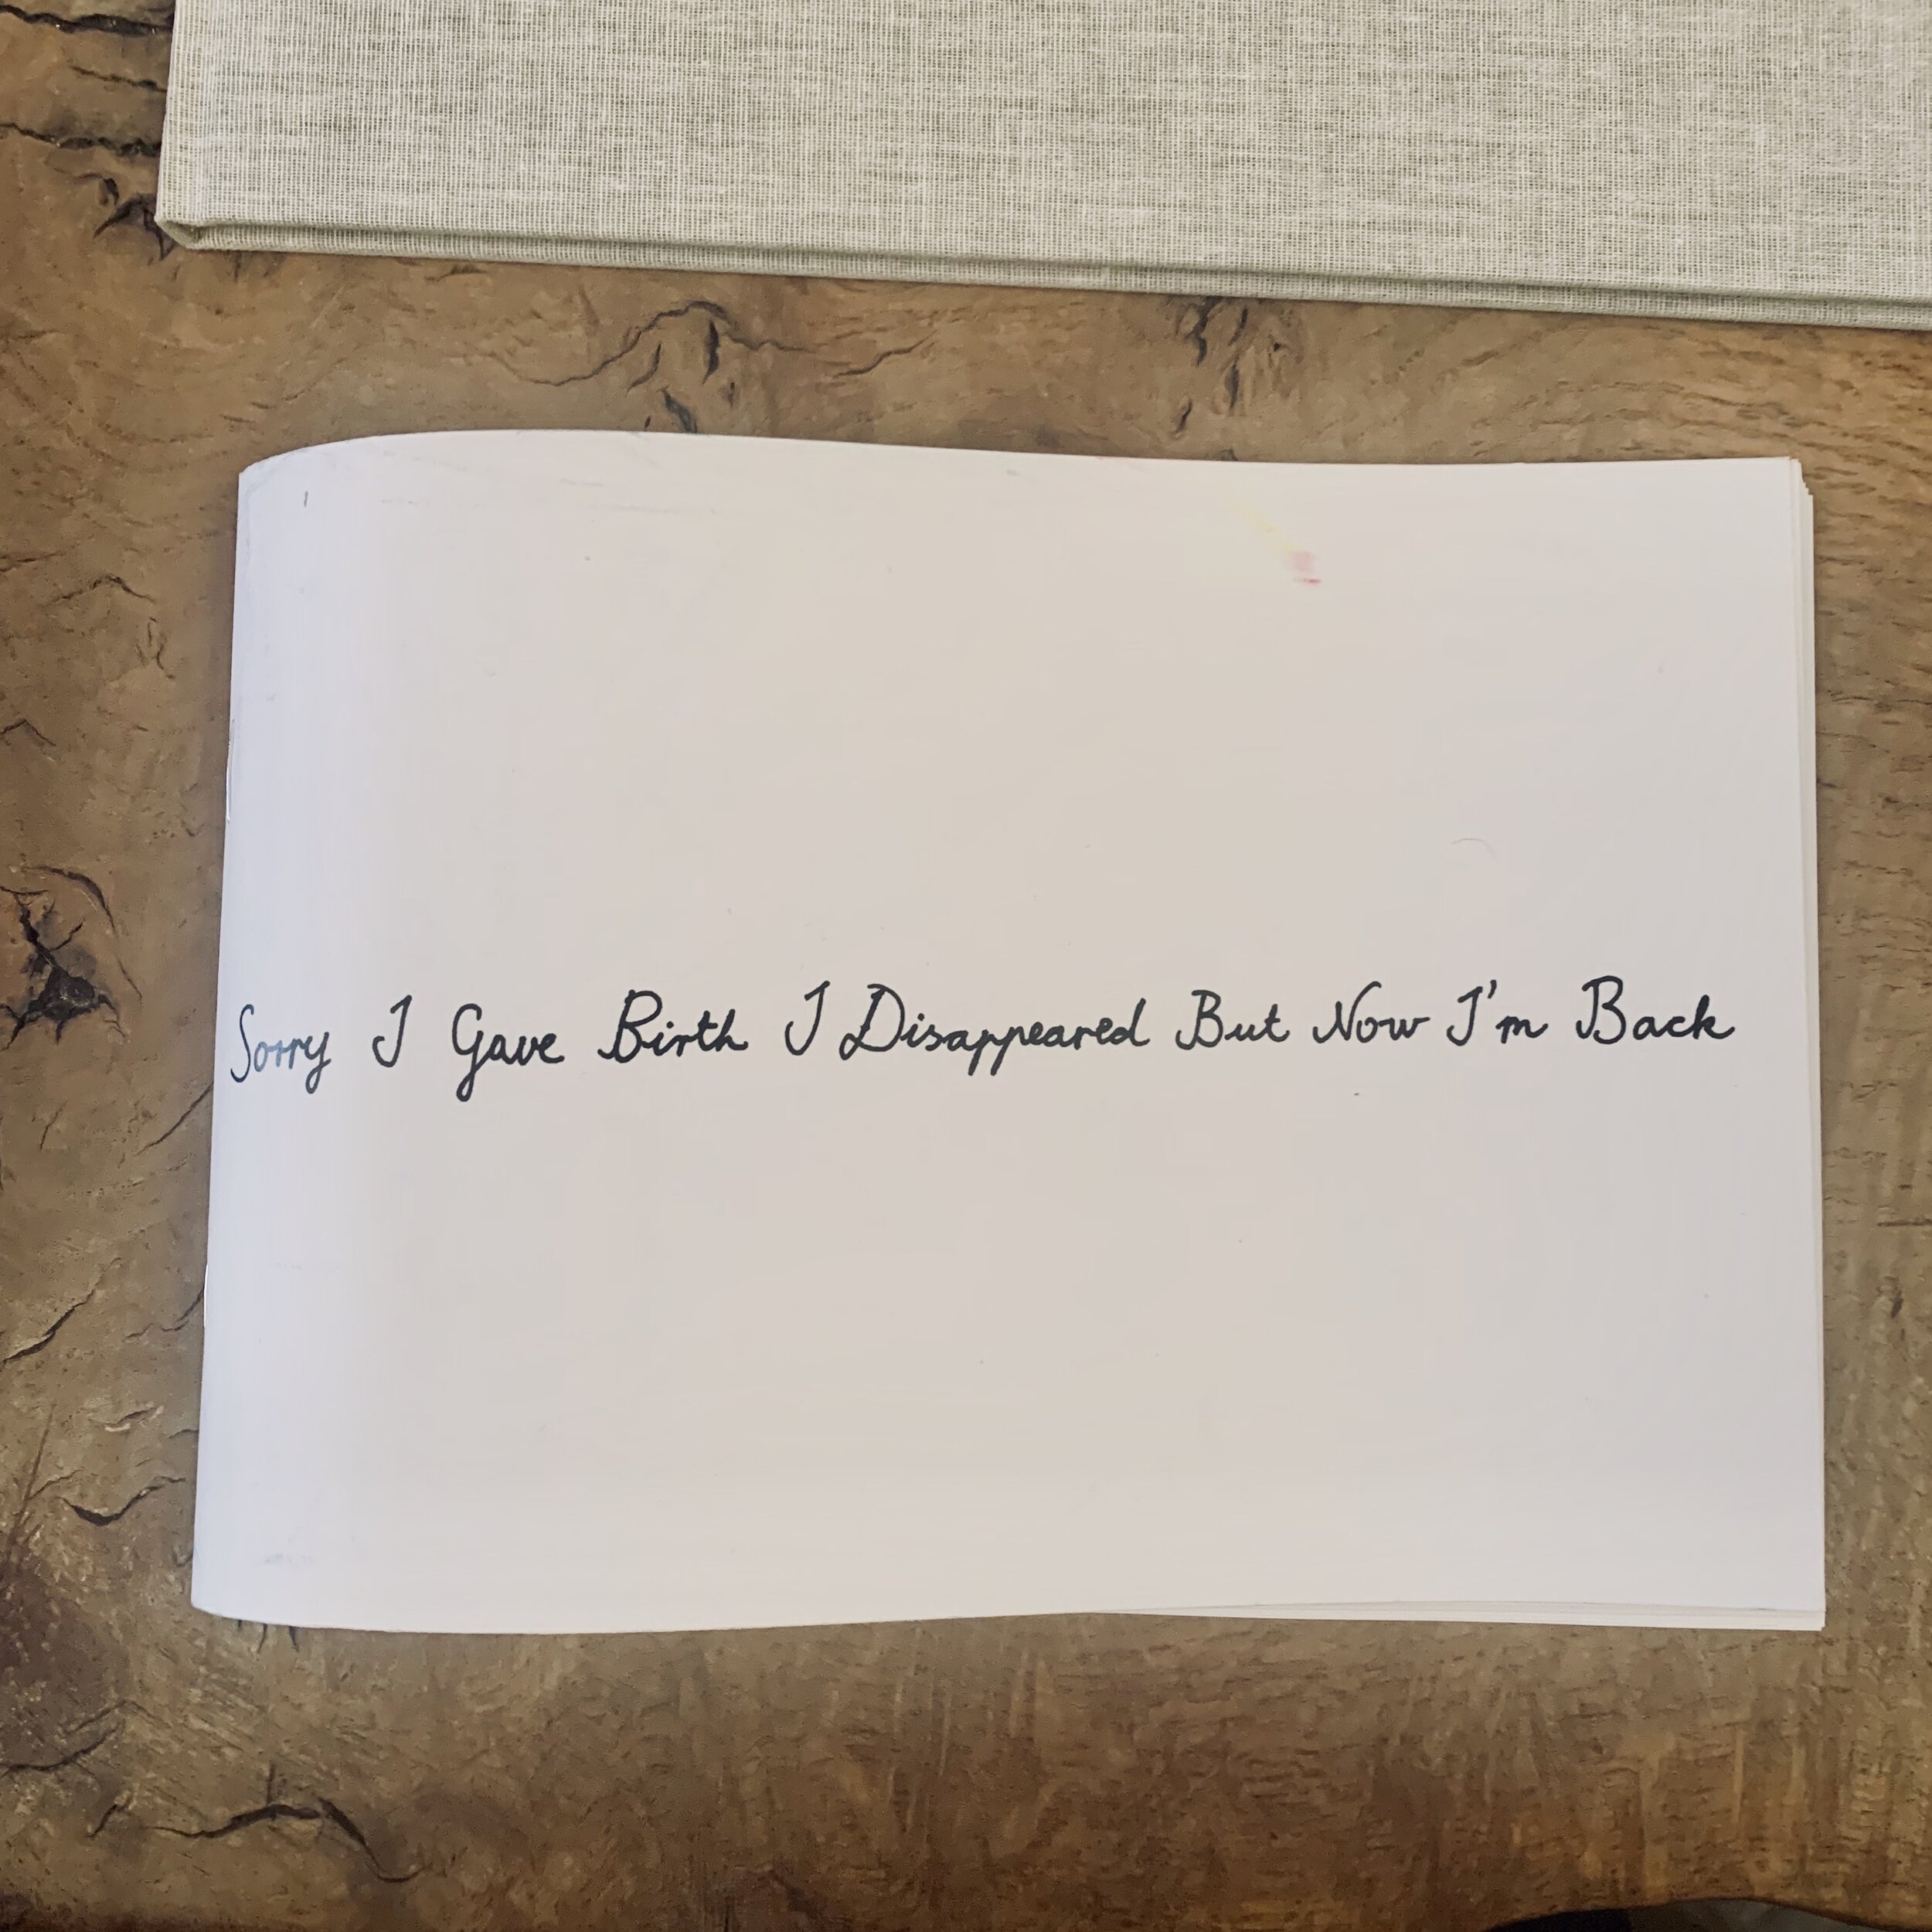 Sorry I Gave Birth I Disappeared But Now I'm Back